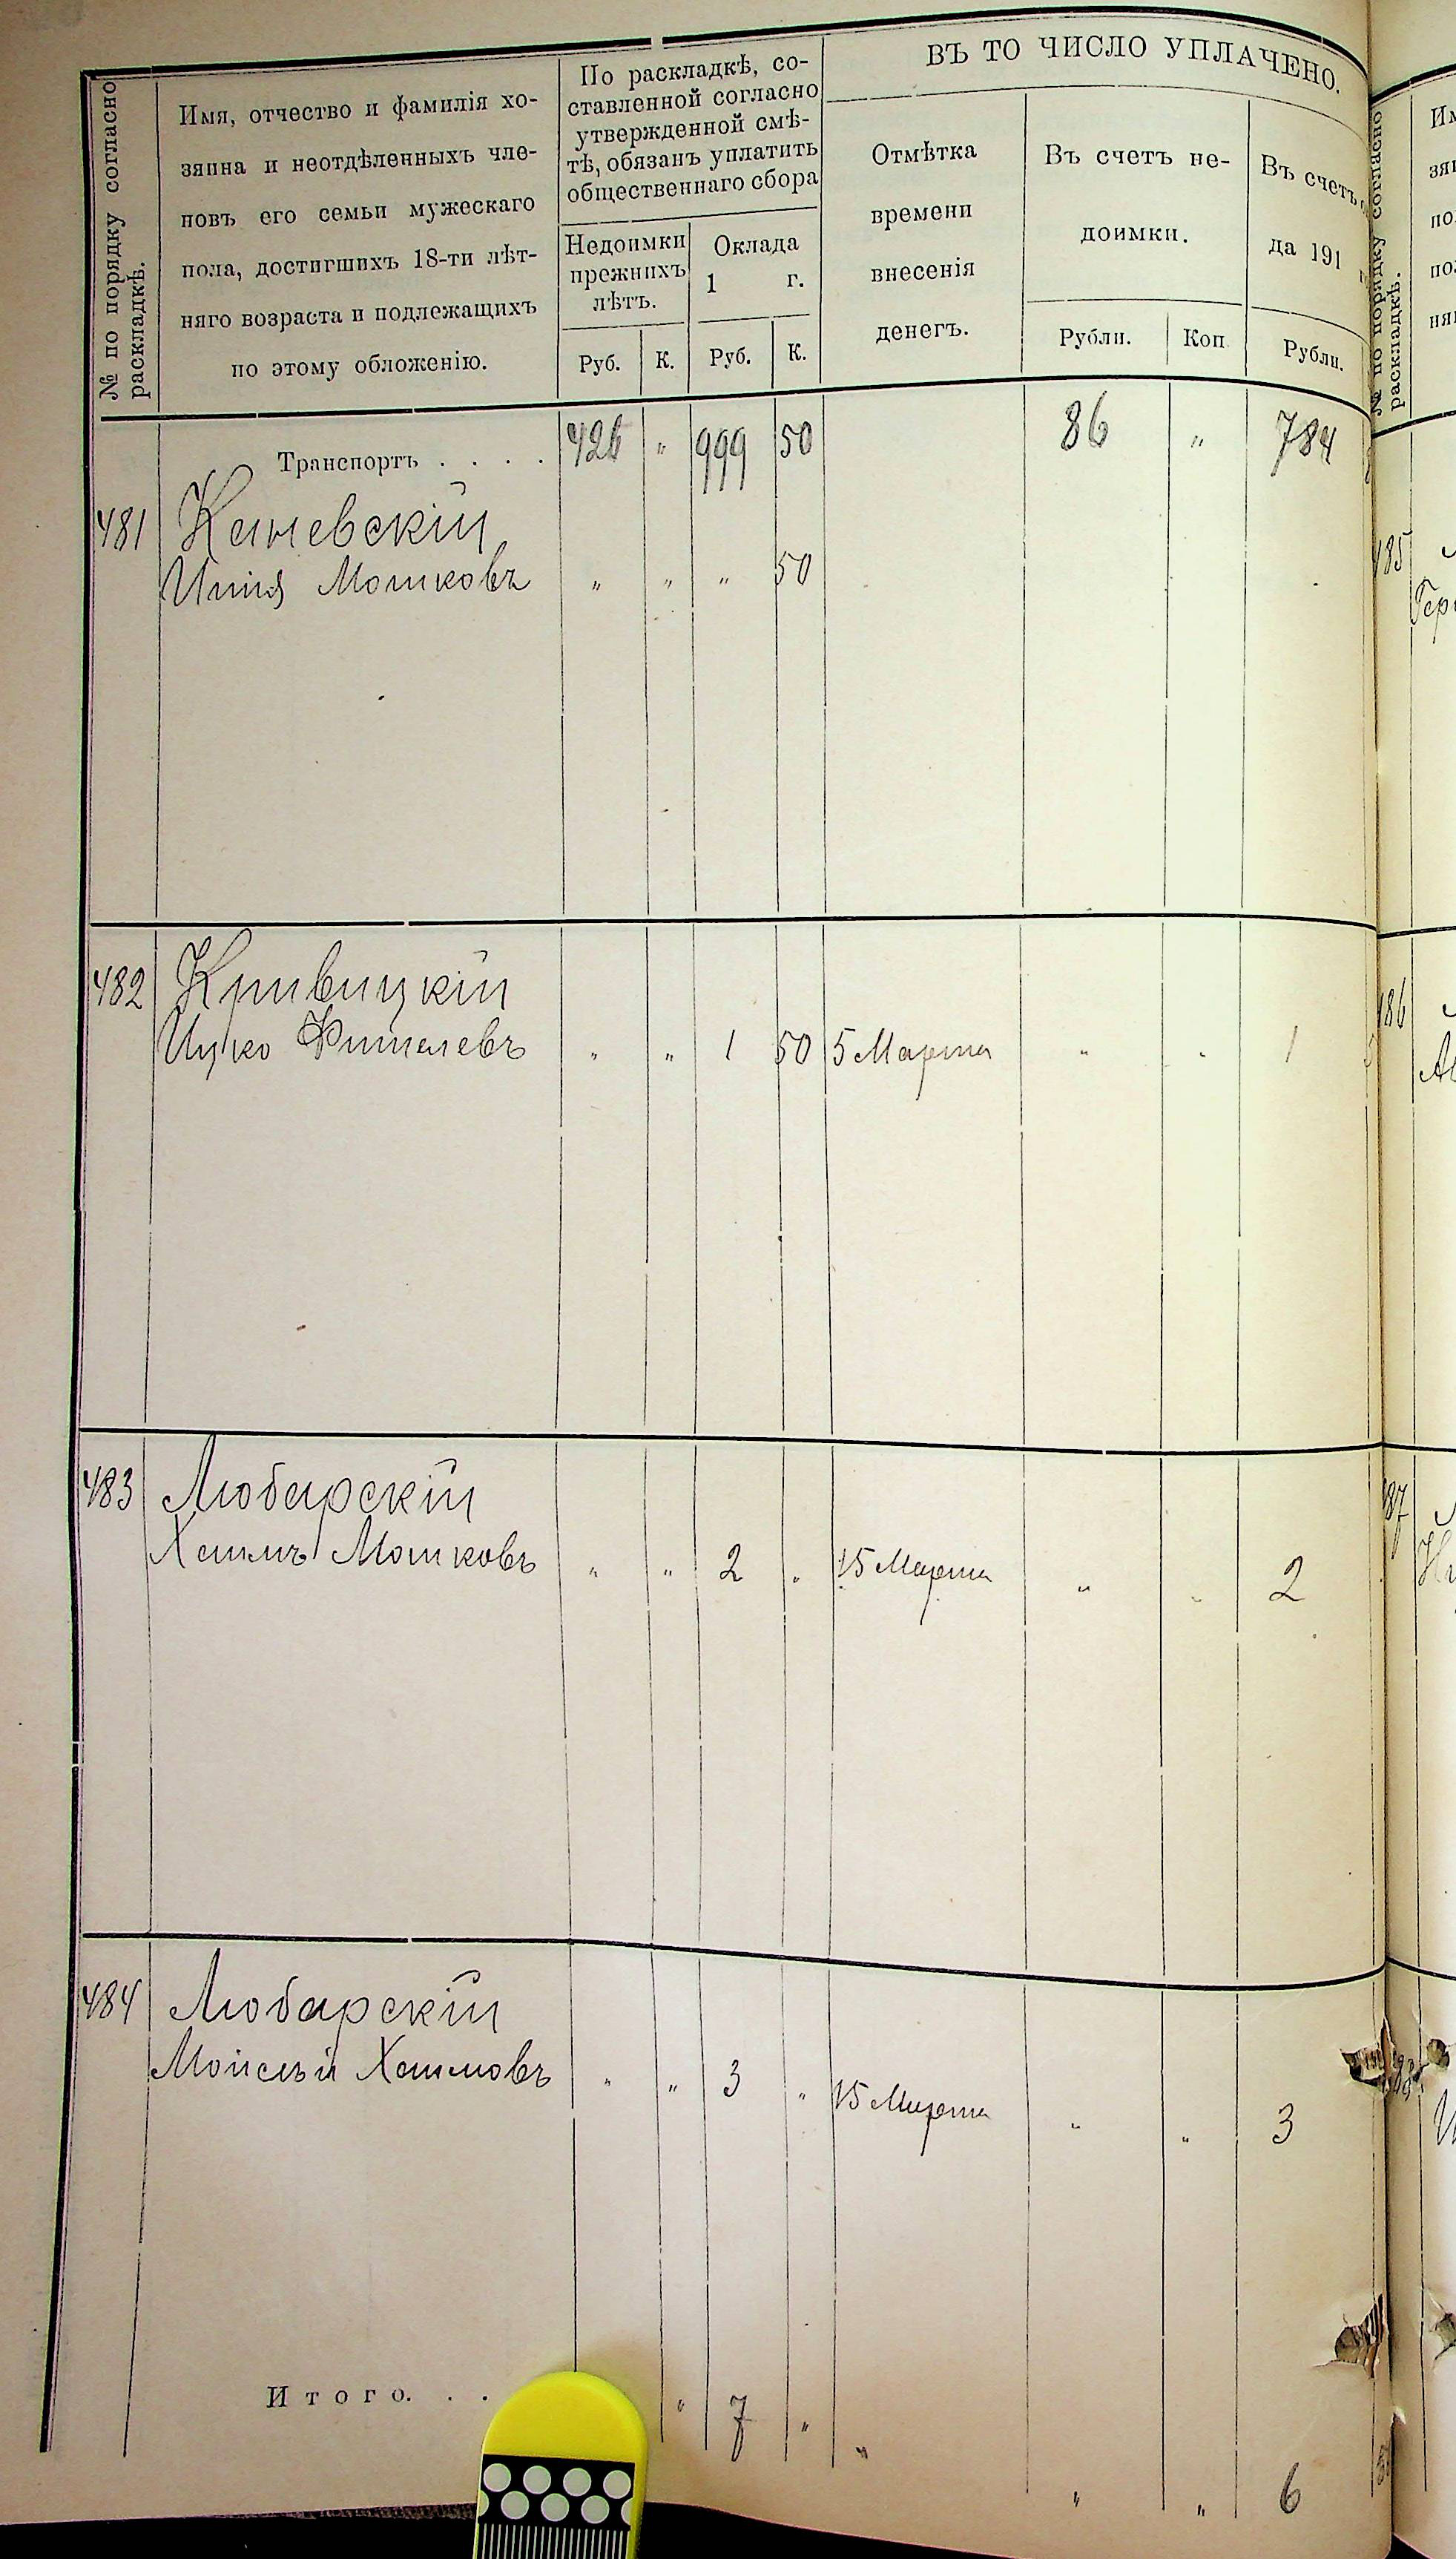 № по порядку согласно
раскладкѣ.
Имя, отчество и фамилія хо-
зяина и неотдѣленныхъ чле-
новъ его семьи мужескаго
пола, достигшихъ 18-ти лѣт-
няго возраста и подлежащихъ
по этому обложенію.
По раскладкѣ, со-
ставленной согласно
утвержденной смѣ-
тѣ, обязанъ уплатить
общественнаго сбора
Недоимки
прежнихъ
лѣтъ.
Оклада
1 г.
Руб. К. Руб. К.
ВЪ ТО ЧИСЛО УПЛАЧЕНО.
Отмѣтка
времени
внесенія
денегъ.
Въ счетъ не-
доимки.
Рубли. Коп
Въ счетъ
да 191
Рубли.
Транспортъ . . . . 426 " 999 50 86 " 784
481 Каневскій
Мошковъ " " " 50
482 Кривицкій
Ицко Фишелевъ " " 1 50 5 Марта " " 1
483 Любарскій
Хаимъ Мошковъ " " 2 " 15 Марта " " 2
484 Любарскій
Мойсѣй Хаимовъ " " 3 " 15 Марта " " 3
Итого. . . " 7 " " " " 6
№ по порядку согласно
раскладкѣ.
485
486